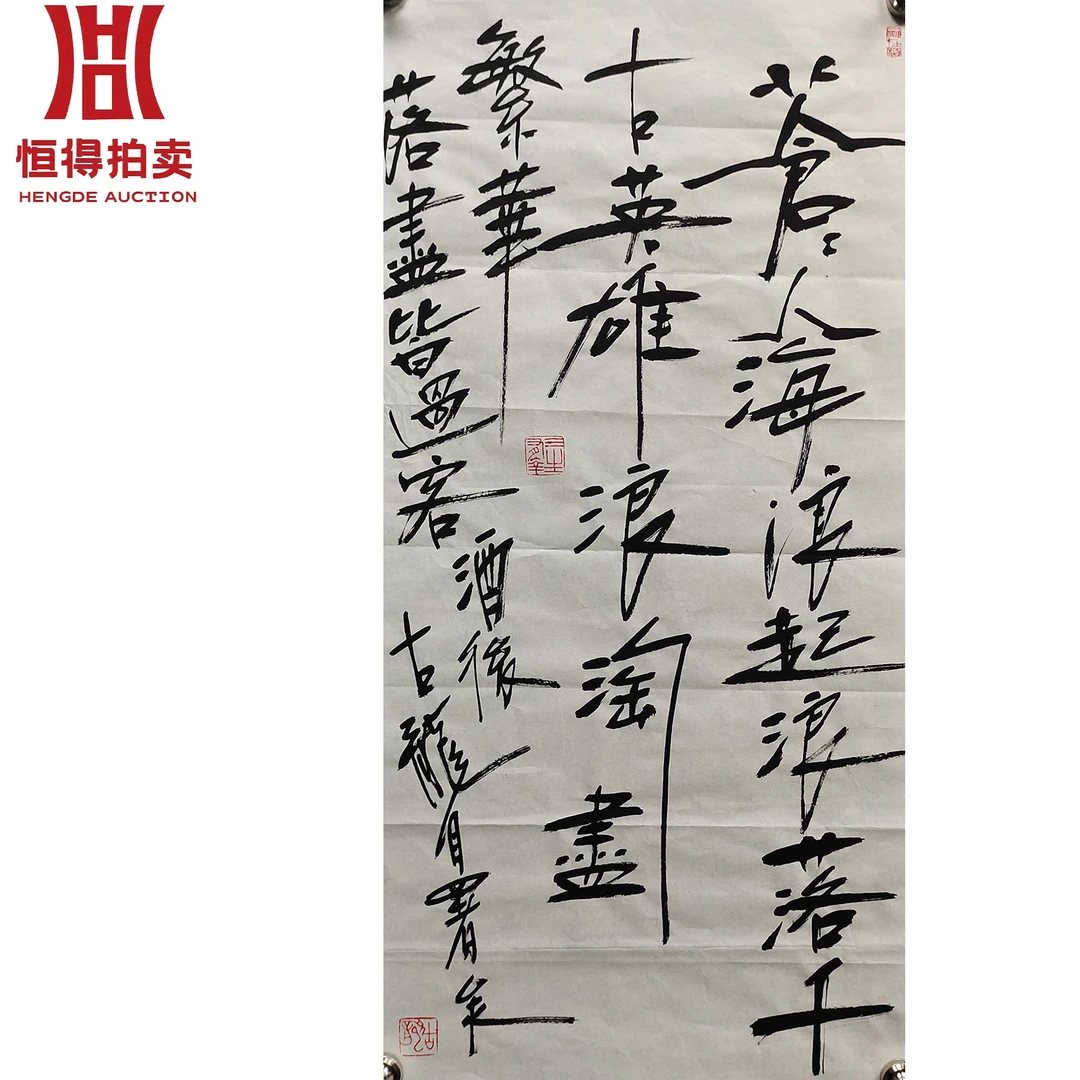 恒得拍卖
HENGDE AUCTION
蒼〻人海浪起浪落千
古英雄浪淘盡
繁華
落盡皆過客
酒後
古龍自署